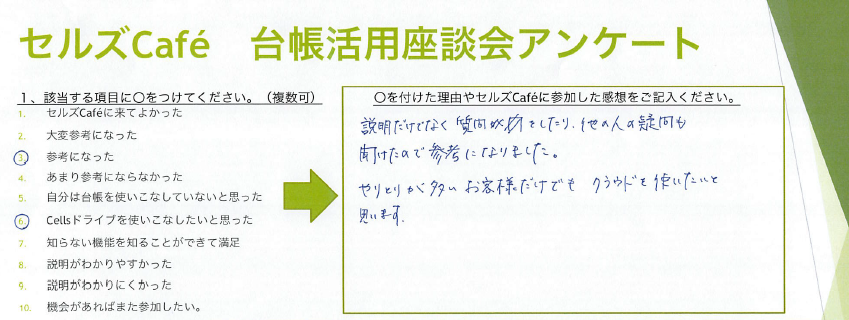 セルズCafé 台帳活用座談会アンケート
1、該当する項目に〇をつけてください。（複数可）
1. セルズCaféに来てよかった
2. 大変参考になった
3. 参考になった
4. あまり参考にならなかった
5. 自分は台帳を使いこなしていないと思った
6. Cellsドライブを使いこなしたいと思った
7. 知らない機能を知ることができて満足
8. 説明がわかりやすかった
9. 説明がわかりにくかった
10. 機会があればまた参加したい。
〇を付けた理由やセルズCaféに参加した感想をご記入ください。
説明だけでなく質問 をしたり、他の人の疑問も
聞けたので参考になりました。
やりとりが多いお客様だけでも クラウドを使いたいと
思います。